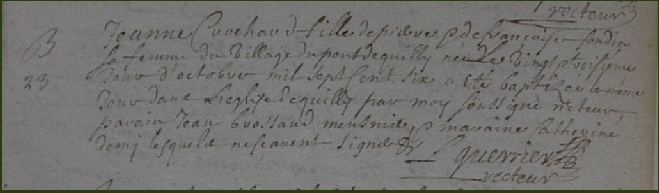 recteur
B
23
Jeanne Crochard fille de pierre & de francoise jondin
sa femme du village du pont dequilly née le vingt troisieme
Jour d'octobre mil sept sent six a été baptisee le même
Jour dans L'eglise dequilly par moy soussigné recteur
parain Jean brossaud meusnier & maraine catherine
demy lesquels ne scavent signer
L guerrier
recteur